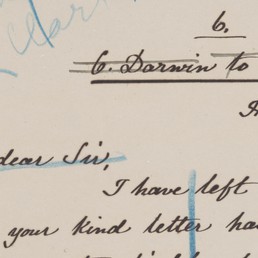 6.
C. Darwin to
dear Sir,
I have left
your kind letter ha